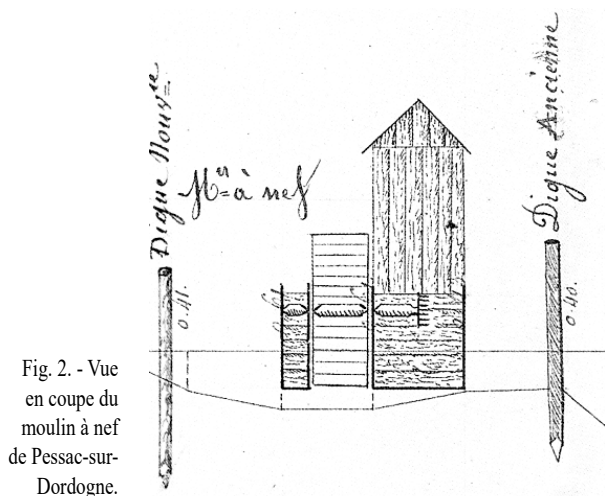 Digue Nouv.se
M.in à nef
Digue Ancienne
0.41.
0.40.
Fig. 2. - Vue
en coupe du
moulin à nef
de Pessac-sur-
Dordogne.